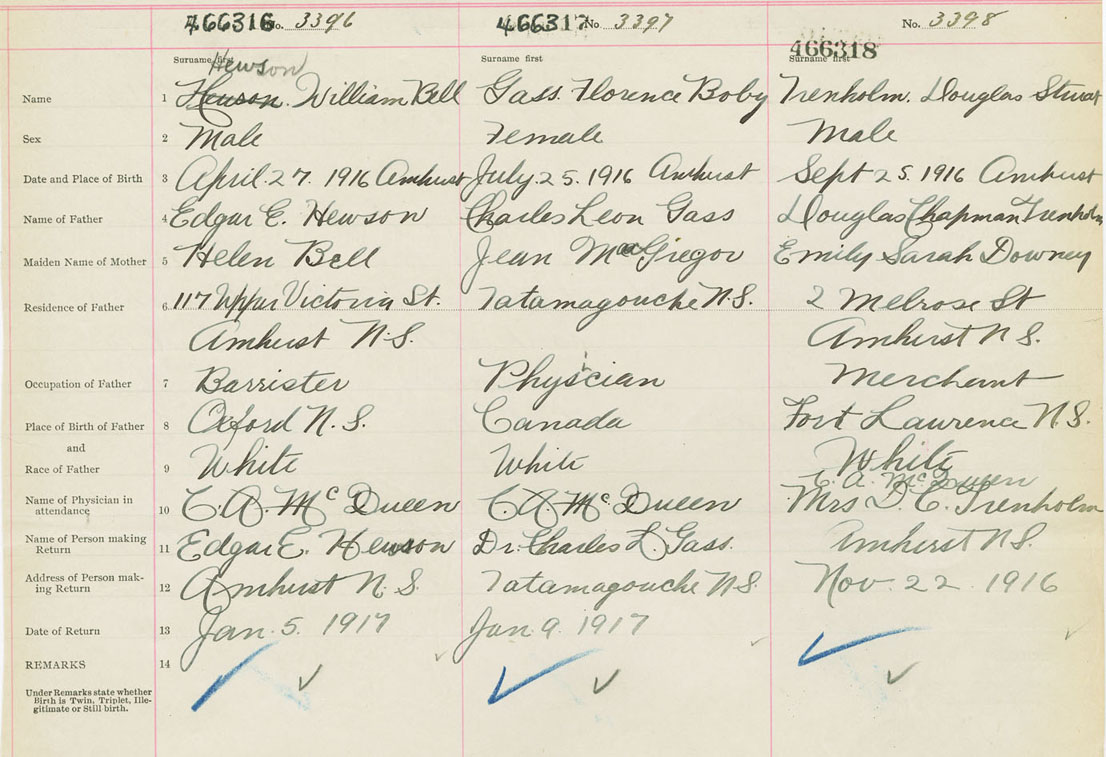 466316 No. 3396 466317 No 3397 No. 3398
466318
Surname first Surname first Surname first
Hewson
Name 1 Hewson. William Bell Gass. Florence Boby Trenholm. Douglas Stuart
Sex 2 Male Female Male
Date and Place of Birth 3 April. 27. 1916 Amhust July. 25. 1916 Amhurst Sept 25. 1916 Amhurst
Name of Father 4 Edgar E. Hewson Charles Leon Gass Douglas Chapman Trenholm
Maiden Name of Mother 5 Helen Bell Jean MacGregor Emily Sarah Downey
Residence of Father 6 117 Upper Victoria St. Tatamagouche N.S. 2 Melrose St
Amhurst N.S. Amhurst N S.
Occupation of Father 7 Barrister Physcian Merchant
Place of Birth of Father 8 Oxford N.S. Canada Fort Lawrence N.S.
and
Race of Father 9 White White White
C. A. McQueen
Name of Physician in attendance 10 C. A. McQueen C. A. McQueen Mrs D. C. Trenholm
Name of Person making Return 11 Edgar E. Hewson Dr. Charles L. Gass. Amhurst N.S.
Address of Person mak-
ing Return 12 Amhurst N.S. Tatamagouche N.S. Nov. 22 1916
Date of Return 13 Jan. 5. 1917 Jan. 9. 1917
REMARKS 14
Under Remarks state whether
Birth is Twin, Triplet, Ille-
gitimate or Still birth.